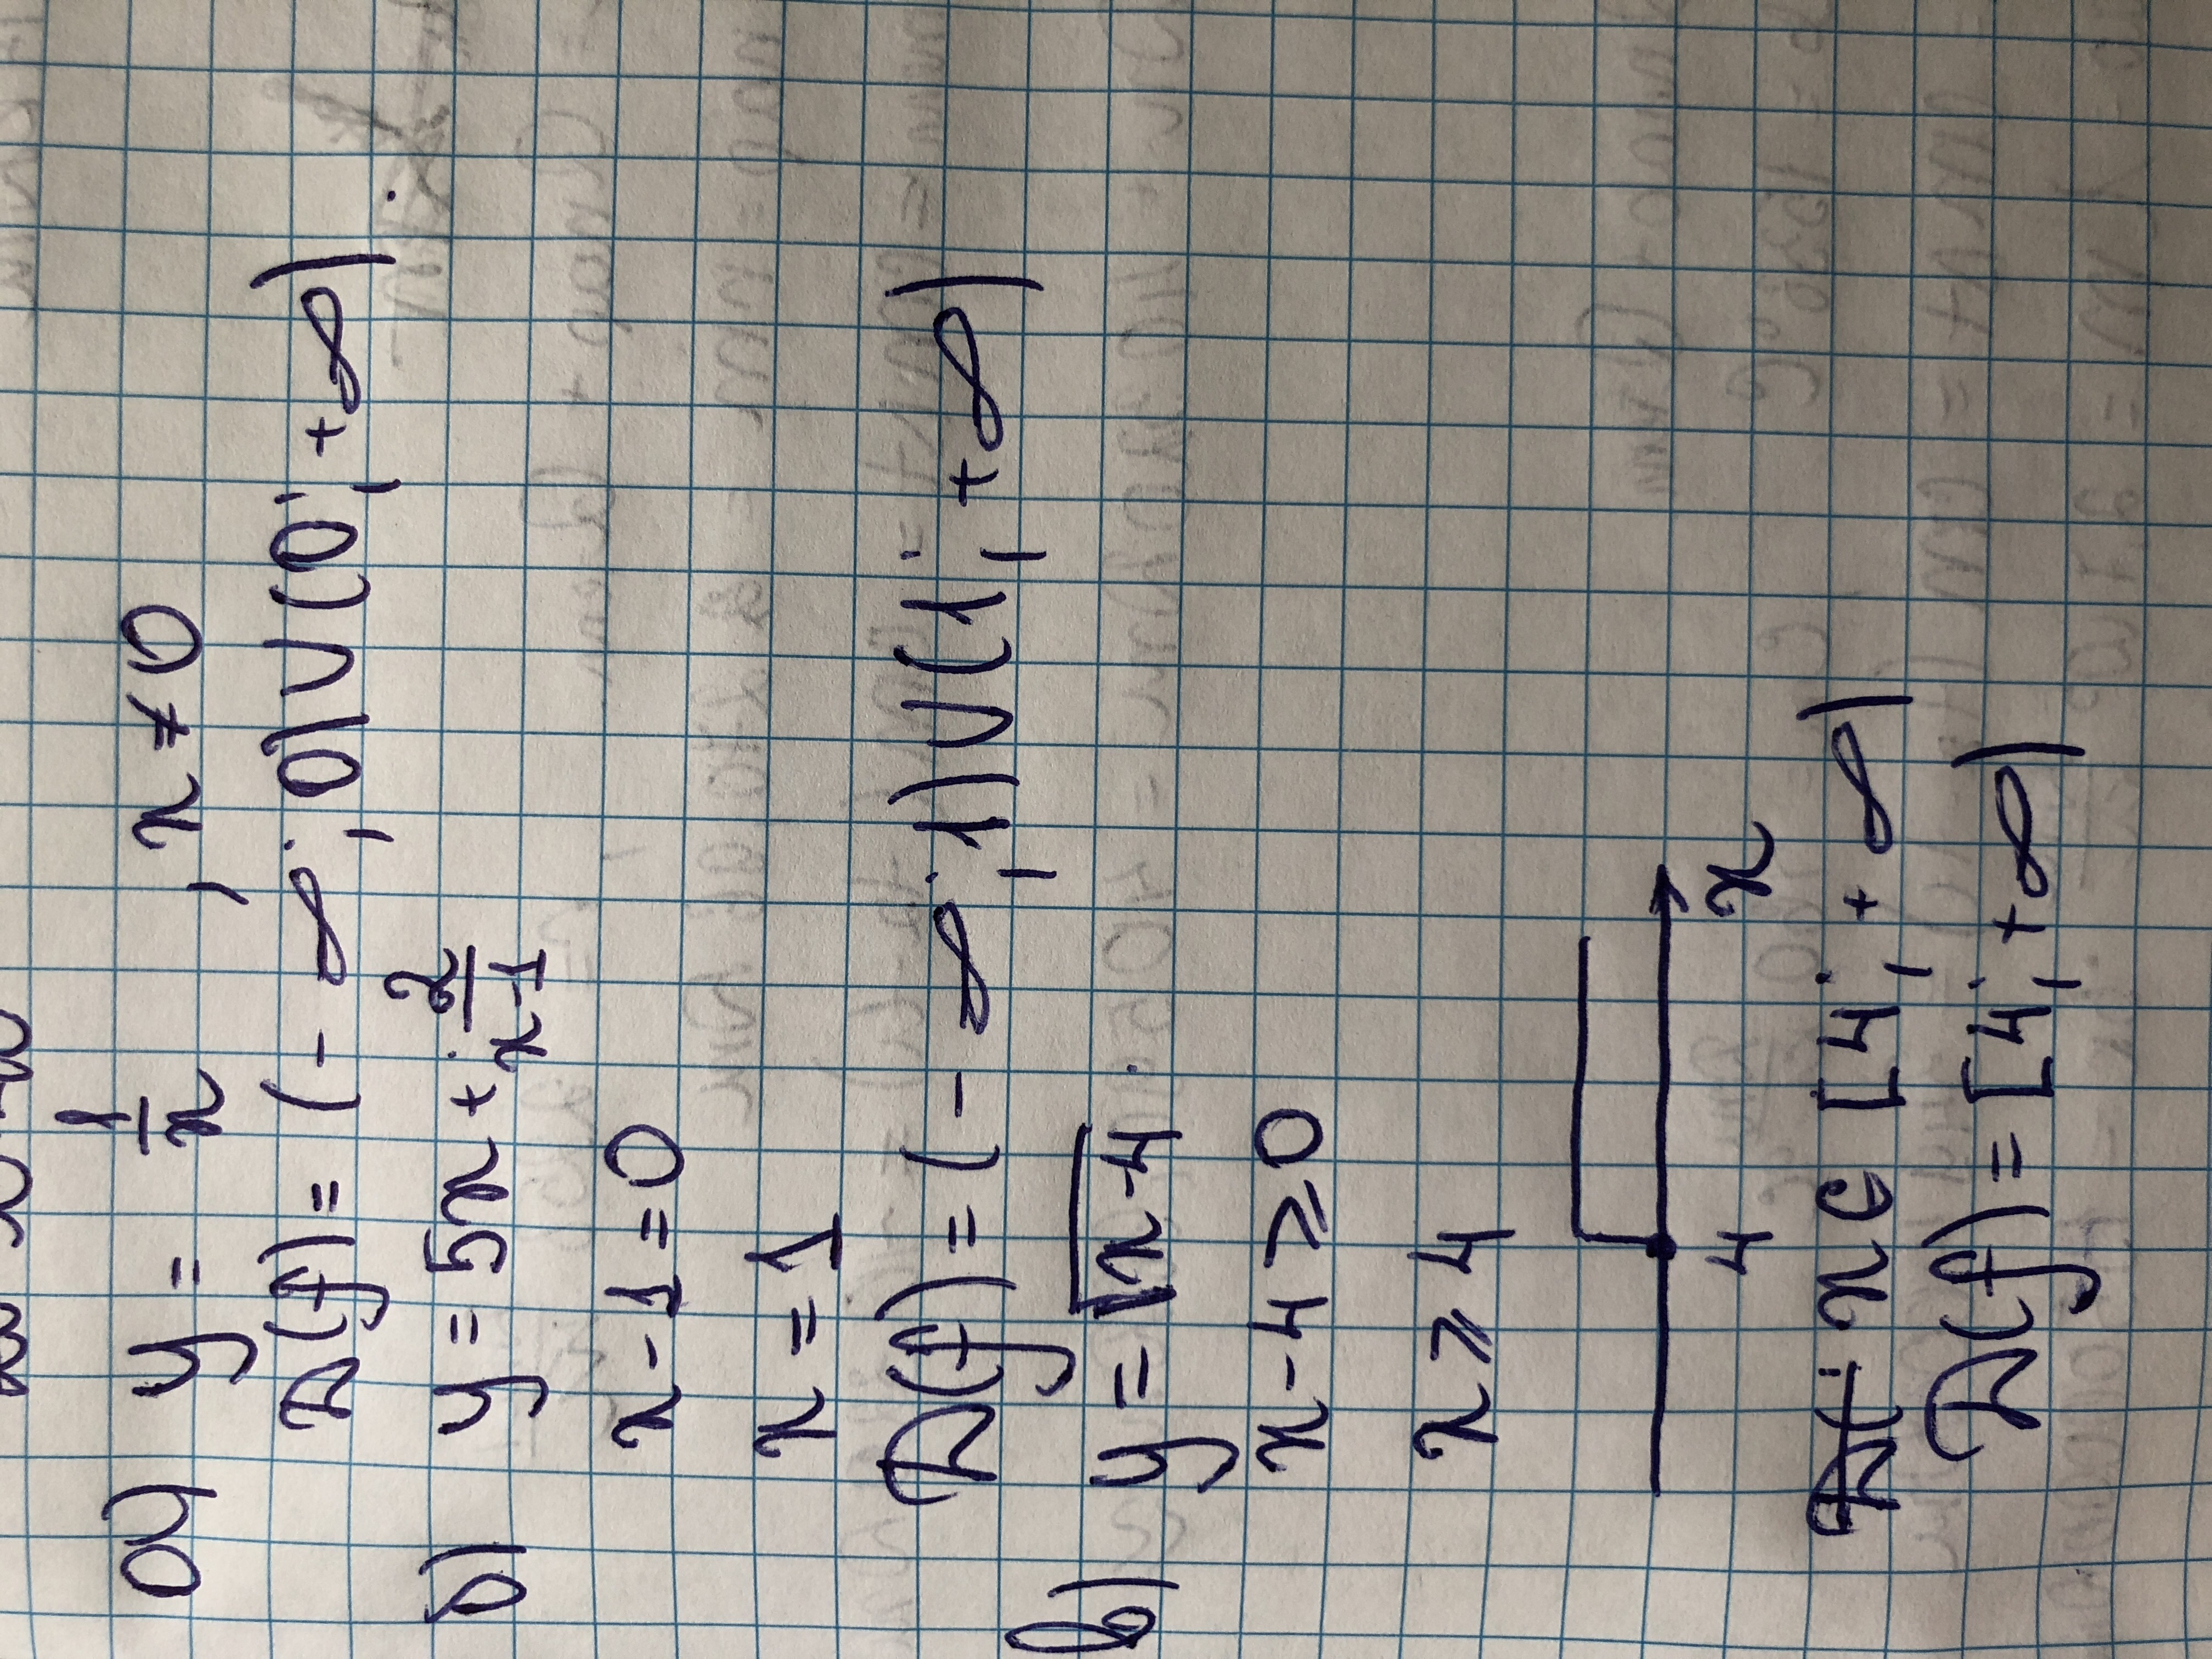 а) y = 1/x , x ≠ 0
D(f) = (- ∞; 0) ∪ (0; + ∞)
б) y = 5x + 2/(x-1)
x - 1 = 0
x = 1
D(f) = (- ∞; 1) ∪ (1; + ∞)
в) y = √(x-4)
x - 4 ⩾ 0
x ⩾ 4
4 x
x ∈ [4; + ∞)
D(f) = [4; +∞)